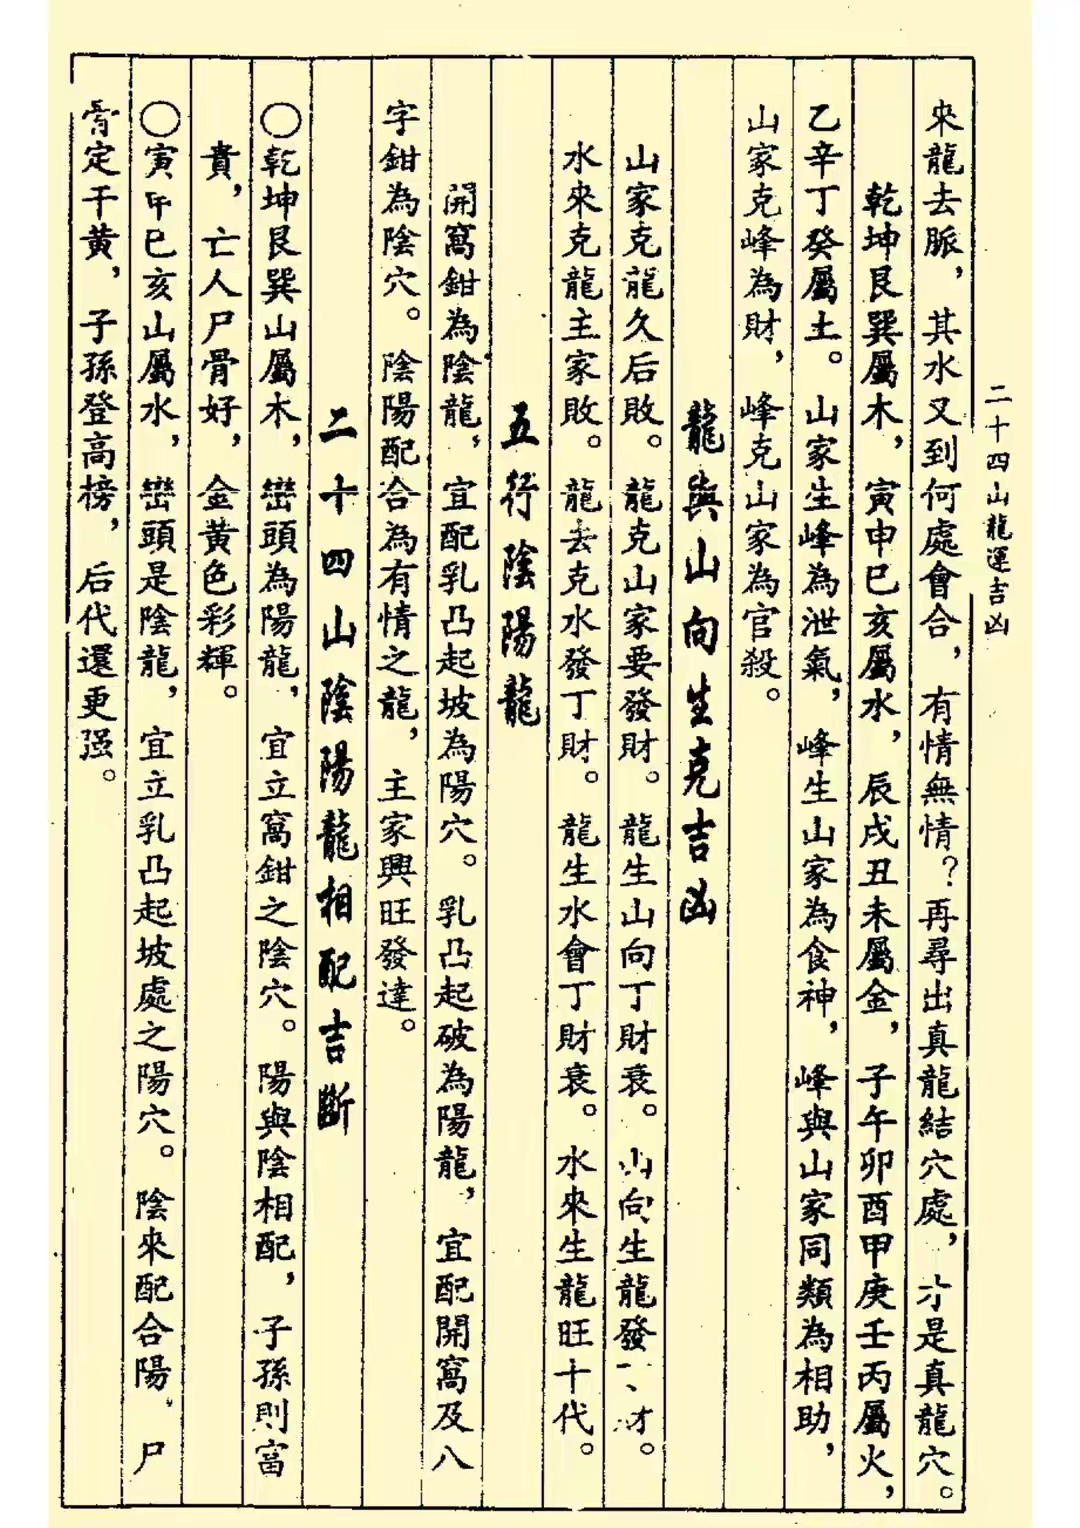 二十四山龍運吉凶
來龍去脈，其水又到何處會合，有情無情？再尋出真龍結穴處，才是真龍穴。
乾坤艮巽屬木，寅申巳亥屬水，辰戌丑未屬金，子午卯酉甲庚壬丙屬火，
乙辛丁癸屬土。山家生峰為泄氣，峰生山家為食神，峰與山家同類為相助，
山家克峰為財，峰克山家為官殺。
龍與山向生克吉凶
山家克龍久后敗。龍克山家要發財。龍生山向丁財衰。山向生龍發財。
水來克龍主家敗。龍去克水發丁財。龍生水會丁財衰。水來生龍旺十代。
五行陰陽龍
開窩鉗為陰龍，宜配乳凸起坡為陽穴。乳凸起破為陽龍，宜配開窩及八
字鉗為陰穴。陰陽配合為有情之龍，主家興旺發達。
二十四山陰陽龍相配吉斷
〇乾坤艮巽山屬木，巒頭為陽龍，宜立窩鉗之陰穴。陽與陰相配，子孫則富
貴，亡人尸骨好，金黃色彩輝。
〇寅巳亥山屬水，巒頭是陰龍，宜立乳凸起坡處之陽穴。陰來配合陽，尸
骨定干黃，子孫登高榜，后代還更强。